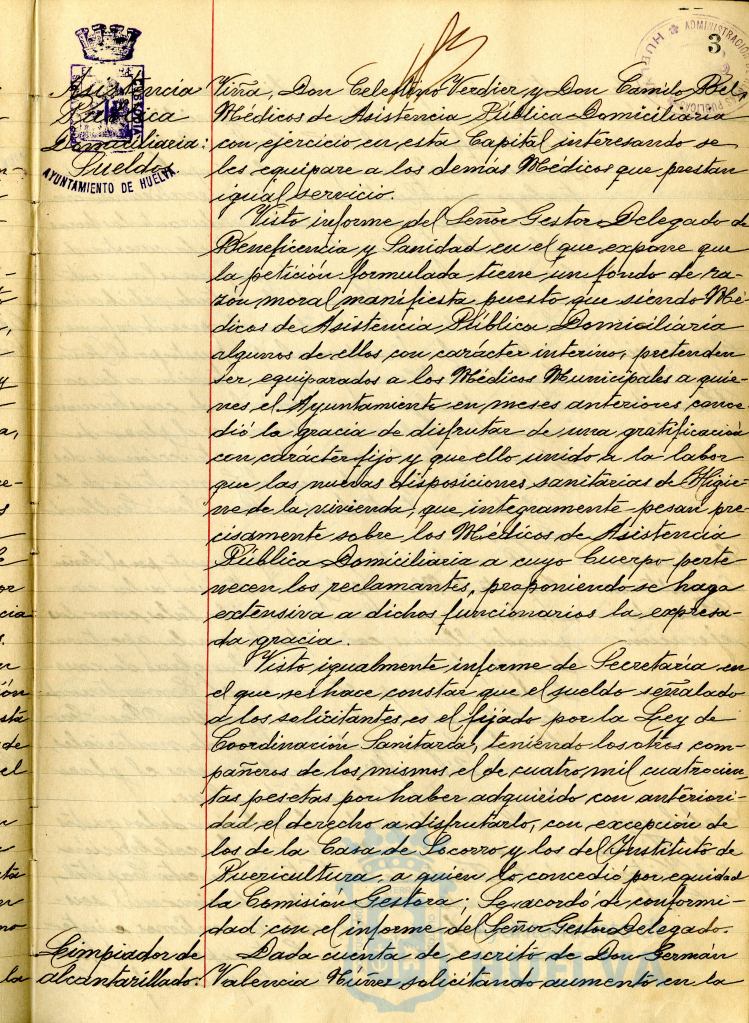 3.
ADMINISTRACION
HUELVA
AYUNTAMIENTO DE HUELVA.
Asistencia
Pública
Domiciliaria:
Sueldos
Viña, Don Celestino Verdier, y Don Camilo Bel,
Médicos de Asistencia Pública Domiciliaria
con ejercicio en esta Capital interesando se
les equipare a los demás Médicos que prestan
igual servicio.
Visto informe del Señor Gestor Delegado de
Beneficencia y Sanidad en el que expone que
la petición formulada tiene un fondo de ra-
zón moral manifiesta puesto que siendo Mé-
dicos de Asistencia Pública Domiciliaria
algunos de ellos con carácter interino, pretenden
ser equiparados a los Médicos Municipales a quie-
nes el Ayuntamiento en meses anteriores conce-
dió la gracia de disfrutar de una gratificación
con carácter fijo y que ello unido a la labor
que las nuevas disposiciones sanitarias de Higie-
ne de la vivienda, que integramente pesan pre-
cisamente sobre los Médicos de Asistencia
Pública Domiciliaria a cuyo Cuerpo perte
necen los reclamantes, proponiendo se haga
extensiva a dichos funcionarios la expresa-
da gracia.
Visto igualmente informe de Secretaría en
el que se hace constar que el sueldo señalado
a los solicitantes es el fijado por la Ley de
Coordinación Sanitaria, teniendo los otros com-
pañeros de los mismos el de cuatro mil cuatrocien
tas pesetas por haber adquirido con anteriori-
dad el derecho a disfrutarlo, con excepción de
los de la Casa de Socorro y los del Instituto de
Puericultura, a quien lo concedió por equidad
la Comisión Gestora; Se acordó de conformi-
dad con el informe del Señor Gestor Delegado.
Limpiador de
alcantarillado:
Dada cuenta de escrito de Don Germán
Valencia Núñez solicitando aumento en la
HUELVA